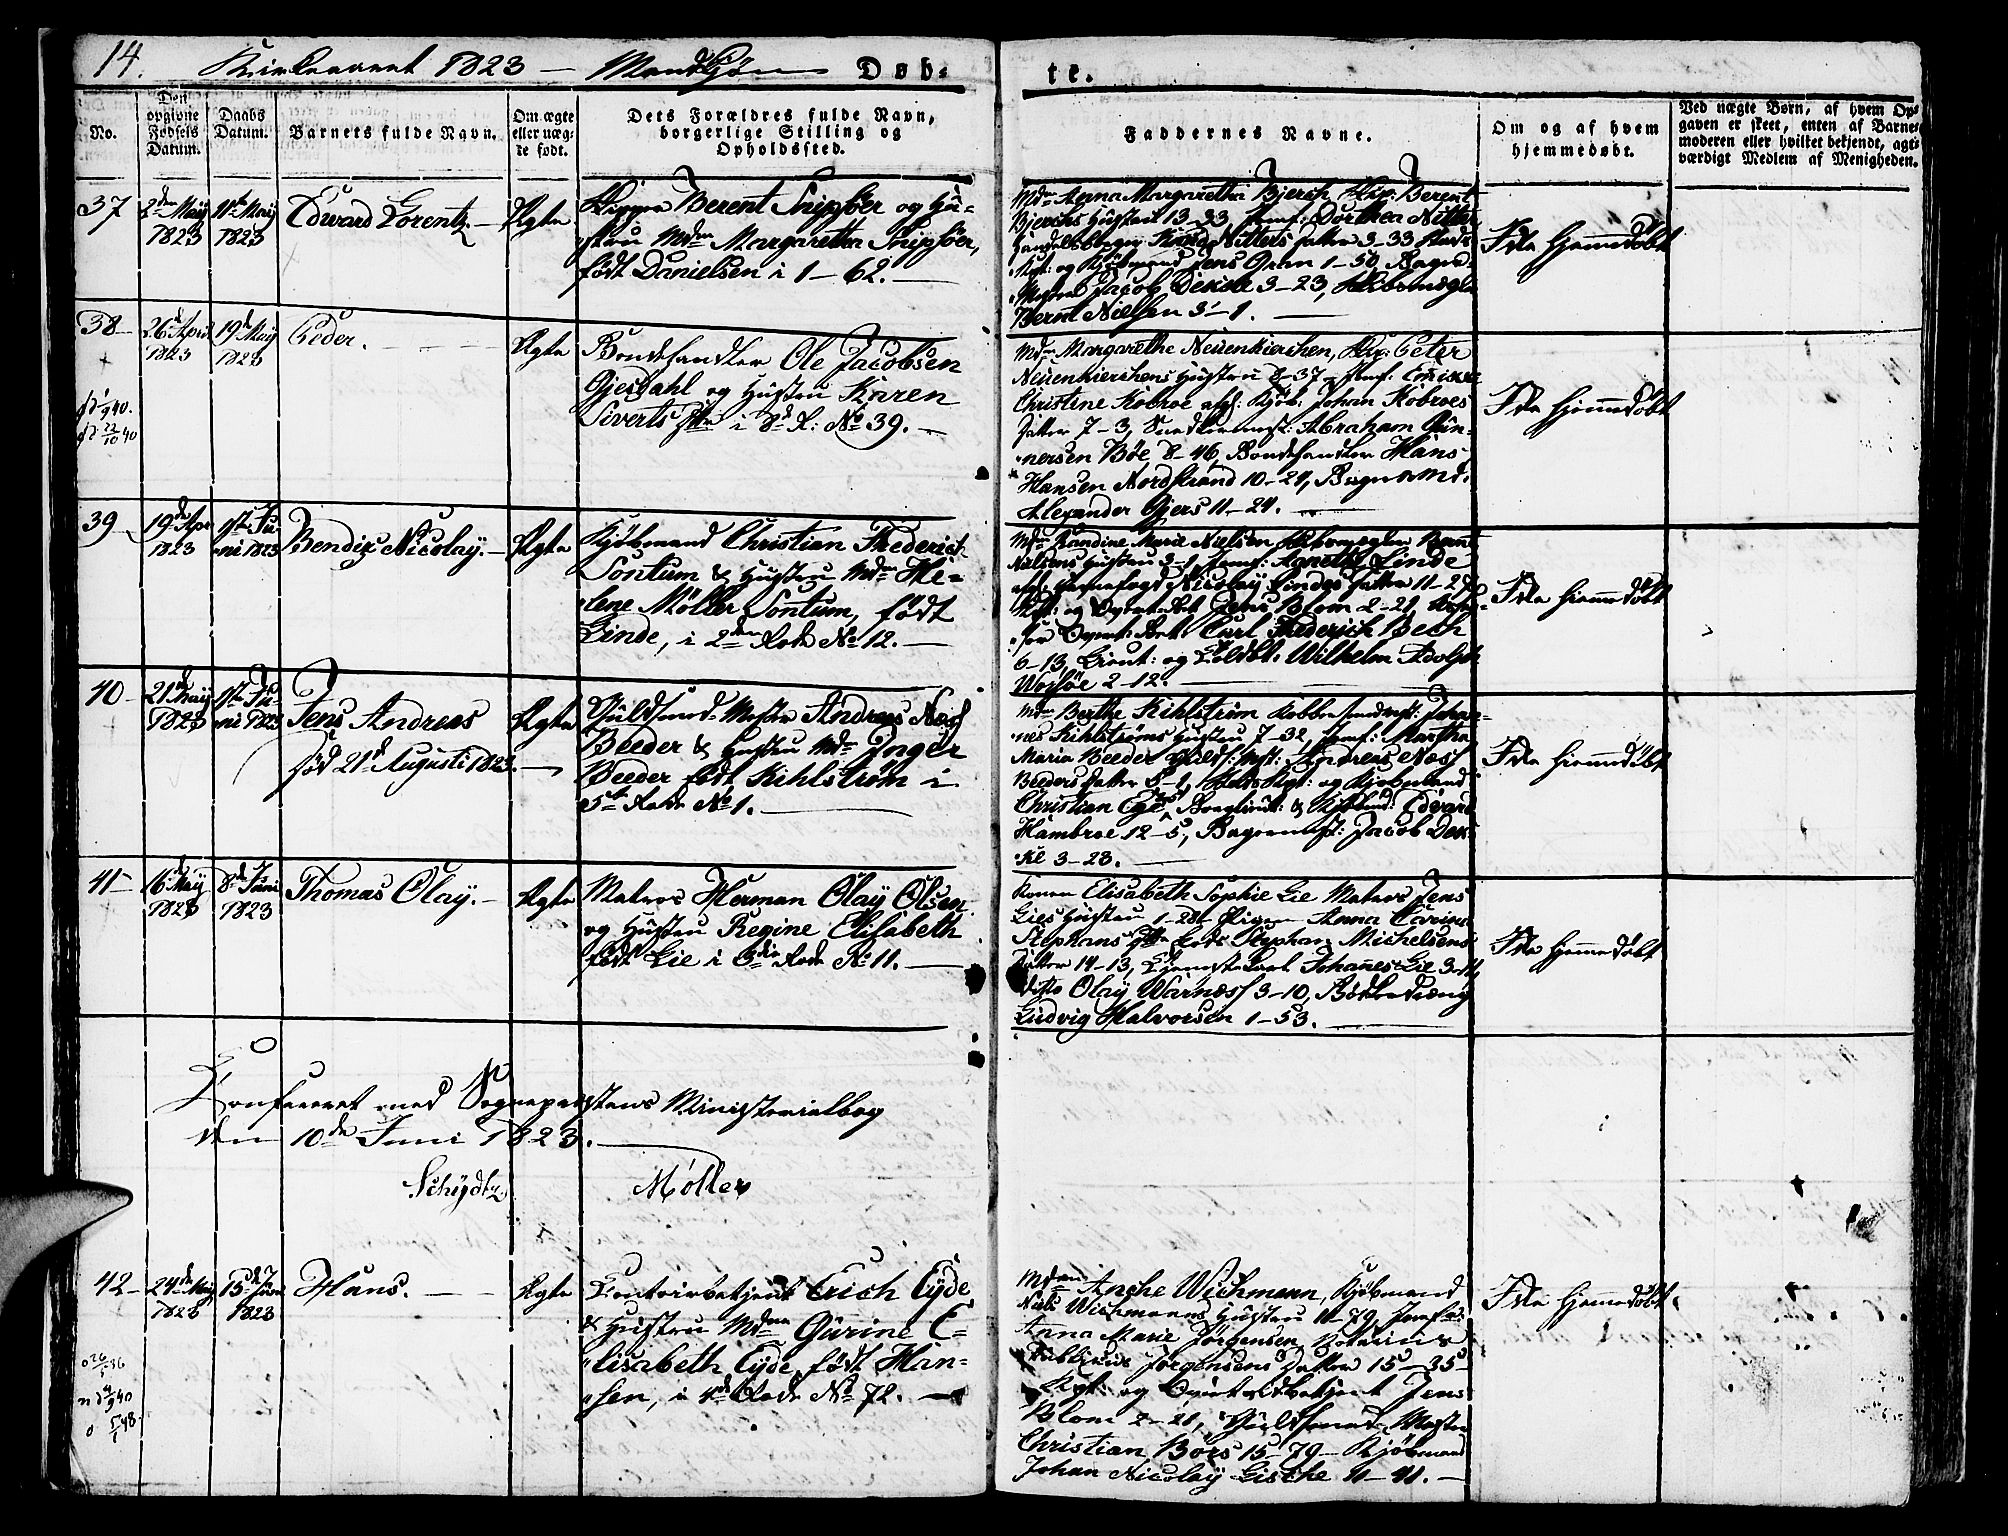 14. Kirkeaaret 1823 — Mandkjøn Døb-
te.
No.
Den opgivne Fødsels Datum.
Daabs Datum.
Barnets fulde Navn.
Om ægte eller uæg-te født.
Dets Forældres fulde Navn, borgerlige Stilling og Opholdssted.
Faddernes Navne.
Om og af hvem hjemmedøbt.
Ved uægte Børn, af hvem Op-
gaven er skeet, enten af Barne-
moderen eller hvilket bekjendt, agt-
værdigt Medlem af Menigheden.
37
2den May 1823
11te May 1823
Edward Lorentz. —
Ægte
Skipper Berent Snipsøer og Hu-
stru Mdme Margaretha Snipsøer,
født Danielsen i 1—62. —
Mdme Anna Margaretha Bjerch, Skip: Berent
Bjerchs Hustrue 13—33, Jomf: Dorthea Nitter
Knud Nitters Datter 3—33
og Kjøbmand Jens Gran 1—50, Bager-
Mester Jacob Dekke 3—23,
Bernt Nielsen 3—1. —
Ikke hjemmedøbt
38
26de April 1823
19de May 1823
Peder.
Ægte
Bondehandler Ole Jacobsen
Gjesdahl og Hustru Karen
Siverts Dtr i 8de R: No 39. —
Mdme Margarethe Neuenkirchen, Skip: Peter
Neuenkirchens Hustru 8—37, Jomf:
Christine Kobroe afg: Kjøb: Johan Kobroes
Datter 7—3, Snedkermest: Abraham Gun-
nersen Böe 8—46, Bondehandler Hans
Hansen Nordstrand 10—21, Bager
Alexander Gjers 11—24. —
Ikke hjemmedøbt
39
19de Apr 1823
1ste Ju-ni 1823
Bendix Nicolaÿ. —
Ægte
Kjøbmand Christian Frederich
Sontum & Hustru Mdme He-
lene Møller Sontum, født
Linde, i 2den Rode No 12. —
Mdme Randine Marie Nielsen Bernt
Nielsens Hustru 3—1, Jomf: Agnethe Linde
Nicolaÿ Lindes Datter 11—
Jens Blom 2—21,
Carl Frederich Bech
6—13, Lieut: og Toldbt: Wilhelm Adolph
Worsöe 2—12. —
Ikke hjemmedøbt
40
21de Maÿ 1823
1ste Ju-ni 1823
Jens Andreas
fød 21de Augusti 1823. —
Ægte
Guldsmed-Mester Andreas Næss
Beeder & Hustru Mdme Inger
Beeder født Kihlstrøm i
5te Rode No 1. —
Mdme Berthe Kihlstrøm Kobbersmedmst: Johan-
nes Kihlstrøms Hustru 7—32, Jomf: Martha
Maria Beeder Gulds: Mst: Andreas Næss
Beeders Datter 5—1, og Kjøbmand
Christian Ege & Kjøbmd: Edvard
Hambroe 12—5, Bagermst: Jacob Dek-
ke 3—23. —
Ikke hjemmedøbt
41
16de Maÿ 1823
8de Juni 1823
Thomas Olaÿ. —
Ægte
Matros Herman Olaÿ Olsen
og Hustru Regine Elisabeth
født Lie i 3die Rode No 11. —
Konen Elisabeth Sophie Lie Matros Jens
Lies Hustru 1—28, Pigen Anna
Stephans Dtr Stephan Michelsens
Datter 14—13, Johannes Lie
ditto Olaÿ Warnæss 3—10, Bødkerdreng
Ludvig Halvorsen 1—53. —
Ikke hjemmedøbt
Confereret med Sognepræstens Ministerialbog
den 10de Juni 1823. —
Schÿdtz
Møller
42
24de Maÿ 1823
15de Juni 1823
Hans. —
Ægte
Contoirbetjent Erich Eÿde
& Hustru Mdme Gurine E-
lisabeth Eÿde, født Han-
sen, i 4de Rode No 72. —
Mdme Anche Wichmann, Kjøbmand
Niels Wichmanns Hustru 11—79, Jomfru
Anna Marie Jørgensen Notarius
Publicus Jørgensens Datter 15—35
og Jens
Blom 2—21, Guldsmed-Mester
Christian Börs 15—79, Kjøbmand
Johan Nicolaÿ Lische 11—41. —
Ikke hjemmedøbt.